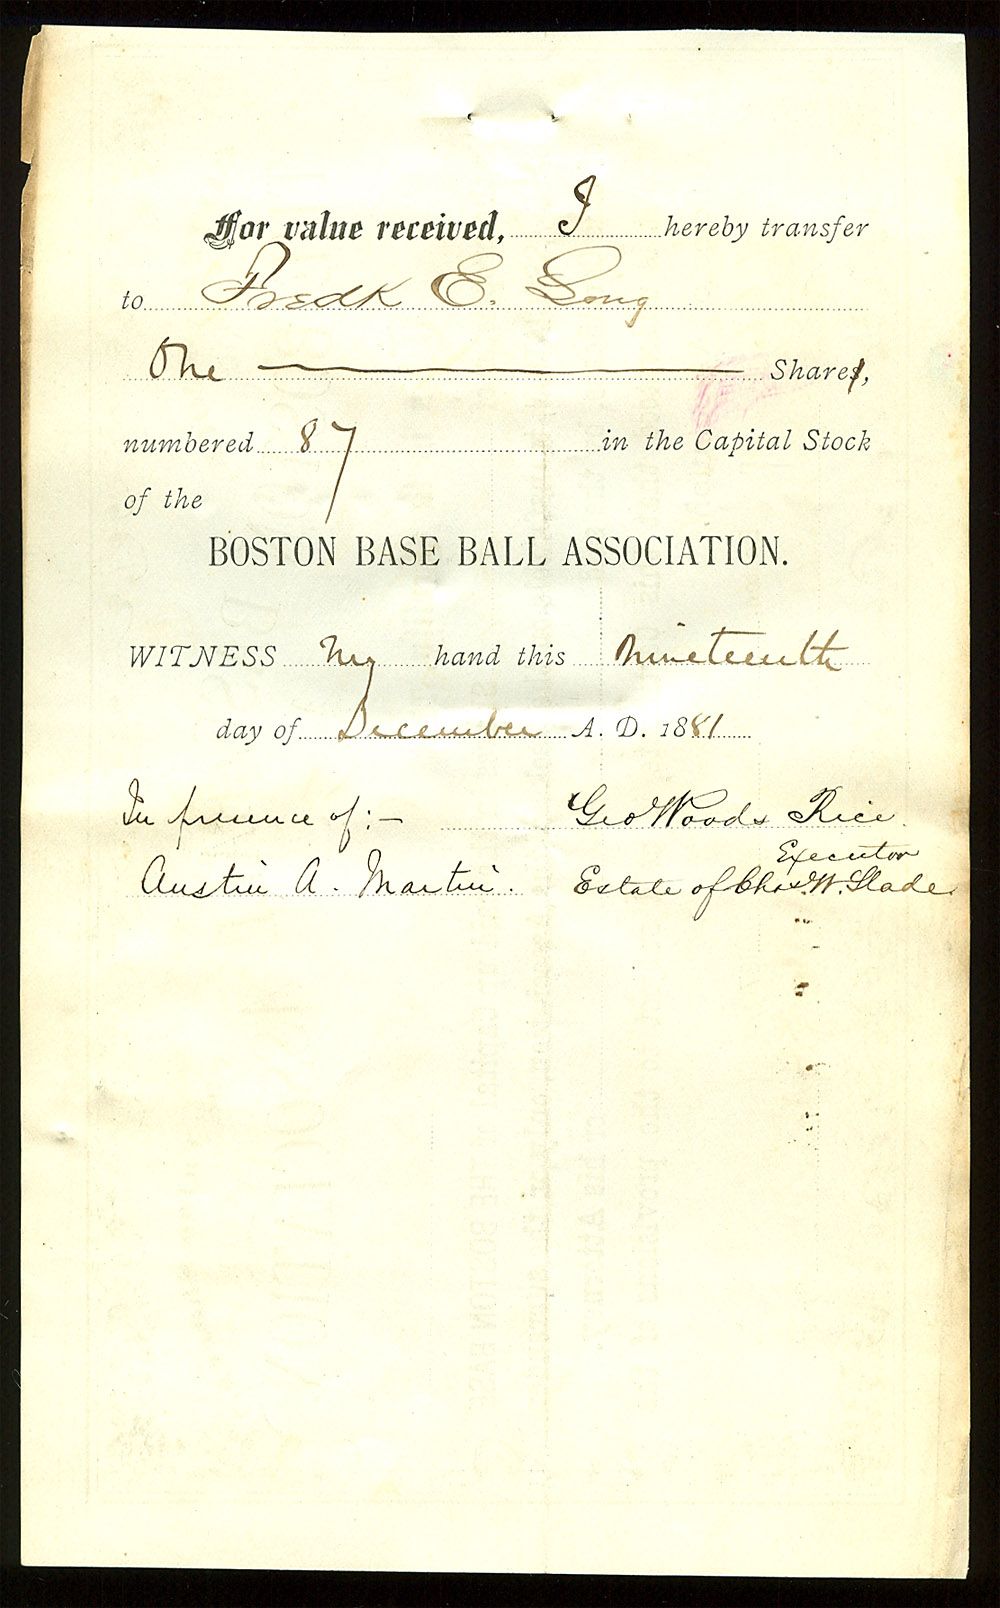 For value received, I hereby transfer
to Fredk E. Long
One Share,
numbered 87 in the Capital Stock
of the
BOSTON BASE BALL ASSOCIATION.
WITNESS my hand this nineteenth
day of December A. D. 1881
In presence of:— Geo Woods Rice
Executor
Austin A. Martin. Estate of Chas. W. Slade